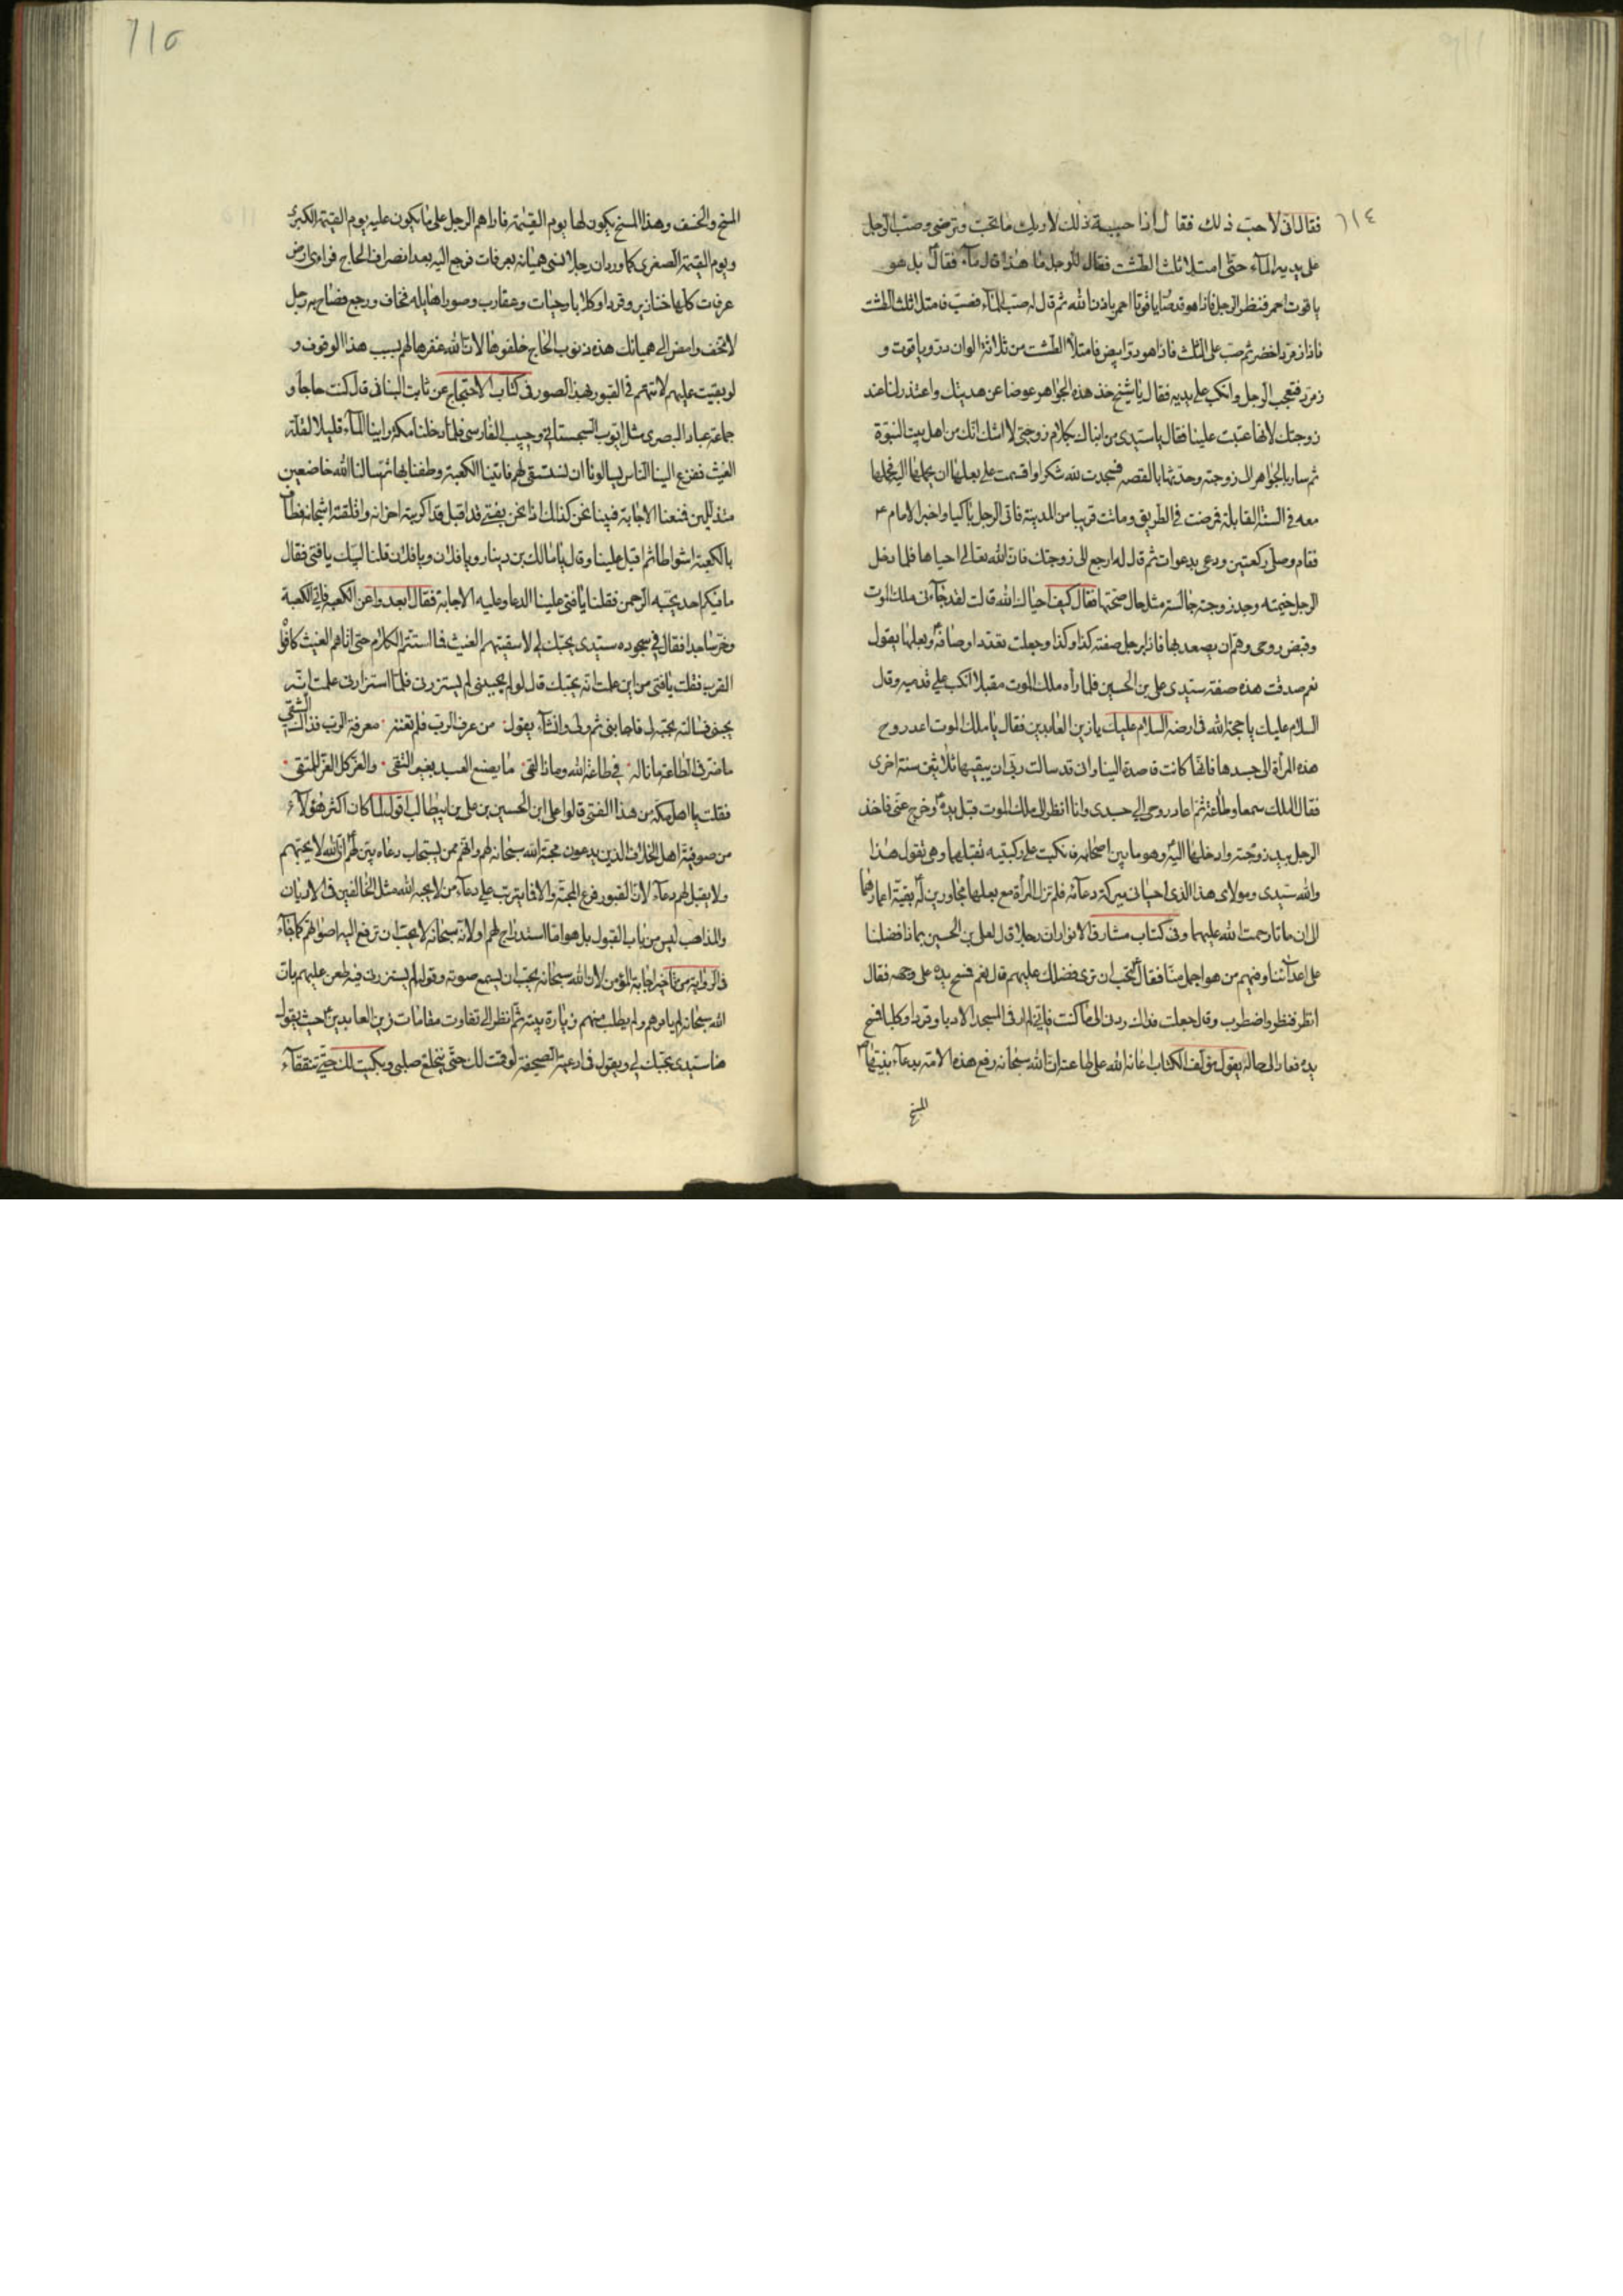 ٦١٤
فقال انى لاحب ذلك فقال اذا حببت ذلك لاريك ما تحب وترضى وصب الرجل
على يديه الماء حتى امتلا ثلث الطشت فقال للرجل ما هذا قال ماء فقال بل هو
ياقوت احمر فنظر الرجل فاذا هو قد صار ياقوتا احمر باذن الله ثم قال له صب الماء فصب فامتلا ثلثا الطشت
فاذا زمرد اخضر ثم صب على الثلث فاذا هو در ابيض فامتلأ الطشت من ثلاثة الوان در وياقوت و
زمرد فتعجب الرجل وانكب على يديه فقال يا شيخ خذ هذه الجواهر عوضا عن هديتك واعتذر لنا عند
زوجتك لانها عتبت علينا فقال يا سيدى من انباك بكلام زوجتى لا اشك انك من اهل بيت النبوة
ثم سار بالجواهر الى زوجته وحدثها بالقصه فسجدت لله شكرا واقسمت على بعلها ان يحملها اليه فحملها
معه فى السنة القابلة فمرضت فى الطريق وماتت قريبا من المدينة فاتى الرجل باكيا واخبر الامام ع
فقام وصلى ركعتين ودعى بدعوات ثم قال له ارجع الى زوجتك فان الله تعالى احياها فلما دخل
الرجل خيمته وجد زوجته جالسة مثل حال صحتها فقال كيف احياك الله قالت لقد جاءنى ملك الموت
وقبض روحى وهم ان يصعد بها فاذا برجل صفته كذا وكذا وجعلت تعدد اوصافه وبعلها يقول
نعم صدقت هذه صفة سيدى على بن الحسين فلما رأه ملك الموت مقبلا انكب على قدميه وقال
السلام عليك يا حجة الله فى ارضه السلام عليك يا زين العابدين فقال يا ملك الموت اعد روح
هذه المرأة الى جسدها فانها كانت قاصدة الينا وانى قد سالت ربى ان يبقيها ثلاثين سنة اخرى
فقال الملك سمعا وطاعة ثم اعاد روحى الى جسدى وانا انظر الى ملك الموت قبل يده وخرج عنى فاخذ
الرجل بيد زوجته وادخلها اليه وهو ما بين اصحابه فانكبت على ركبتيه تقبلهما وهى تقول هذا
والله سيدى ومولاى هذا الذى احيانى ببركة دعائه فلم تزل المرأة مع بعلها مجاورين له بقية اعمارهما
الى ان ماتا رحمت الله عليهما وفى كتاب مشارق الانوار ان رجلا قال لعلى بن الحسين بماذا فضلنا
على اعدائنا وفيهم من هو اجمل منا فقال اتحب ان ترى فضلك عليهم قال نعم فمسح يده على وجهه فقال
انظر فنظر واضطرب وقال جعلت فداك ردنى الى ما كنت فانى لم ار فى المسجد الا دبا وقردا وكلبا فمسح
يده فعاد الى حاله يقول مؤلف الكتاب اعانه الله على طاعته ان الله سبحانه رفع هذه الامة بدعاء نبيها
المسخ
٦١٥
المسخ والخسف وهذا المسخ يكون لها يوم القيمة فاراهم الرجل على ما يكون عليه يوم القيمة الكبرى
ويوم القيمة الصغرى كما ورد ان رجلا نسى هميانه بعرفات فرجع اليه بعد انصراف الحاج فراى ارض
عرفات كلها خنازير وقردا وكلابا وحيات وعقارب وصورا هايلة فخاف ورجع فصاح به رجل
لا تخف وامض الى هميانك هذه ذنوب الحاج خلفوها لان الله غفرها لهم بسبب هذا الوقوف و
لو بقيت عليهم لاتتهم فى القبور بهذه الصور فى كتاب الاحتجاج عن ثابت البنانى قال كنت حاجا و
جماعة عباد البصرى مثل ايوب السجستانى وحبيب الفارسى فلما دخلنا مكة راينا الماء قليلا لقلة
الغيث ففزع الينا الناس يسالونا ان نستسقى لهم فاتينا الكعبة وطفنا بها ثم سالنا الله خاضعين
متذللين فمنعنا الاجابة فبينا نحن كذلك اذا نحن بفتى قد اقبل قد اكربته احزانه واقلقته اشجانه فطاف
بالكعبة اشواطا ثم اقبل علينا وقال يا مالك بن دينار ويا فلان ويا فلان قلنا لبيك يا فتى فقال
ما فيكم احد يحبه الرحمن فقلنا يا فتى علينا الدعا وعليه الاجابة فقال ابعدوا عن الكعبة فاتى الكعبة
وخر ساجدا فقال فى سجوده سيدى بحبك لى الا سقيتهم الغيث فما استتم الكلام حتى اتاهم الغيث كافواه
القرب فقلت يا فتى من اين علمت انه يحبك قال لو لم يحببنى لم يستزرنى فلما استزارنى علمت انه
يحبنى فسالته بحبه لى فاجابنى ثم ولى وانشاء يقول من عرف الرب فلم تغنه معرفة الرب فذاك الشقى
ما ضر فى الطاعة ما ناله فى طاعة الله وماذا لقى ما يصنع العبد بغير التقى والعز كل العز للمتقى
فقلت يا اهل مكة من هذا الفتى قالوا على ابن الحسين بن على بن ابيطالب اقول لما كان اكثر هؤلاء
من صوفية اهل الخلاف الذين يدعون محبة الله سبحانه لهم وانهم ممن يستجاب دعاه بين لهم ان الله لا يحبهم
ولا يقبل لهم دعاء لان القبور فرع المحبة والا فما يترتب على دعاء من لا يحبه الله مثل المخالفين فى الاديان
والمذاهب ليس من باب القبول بل هو اما استدراج لهم او لانه سبحانه لا يحب ان ترفع اليه اصواتهم كما جاء
فى الرواية من تأخير اجابة المؤمن لان الله سبحانه يحب ان يسمع صوته وقوله لم يستزرنى فيه طعن عليهم بان
الله سبحانه لم يامرهم ولم يطلب منهم زيارة بيته ثم انظر الى تفاوت مقامات زين العابدين حيث يقول
هنا سيدى بحبك لى ويقول فى ادعية الصحيفة لو قمت لك حتى ينخلع صلبى وبكيت لك حتى تتفقاء